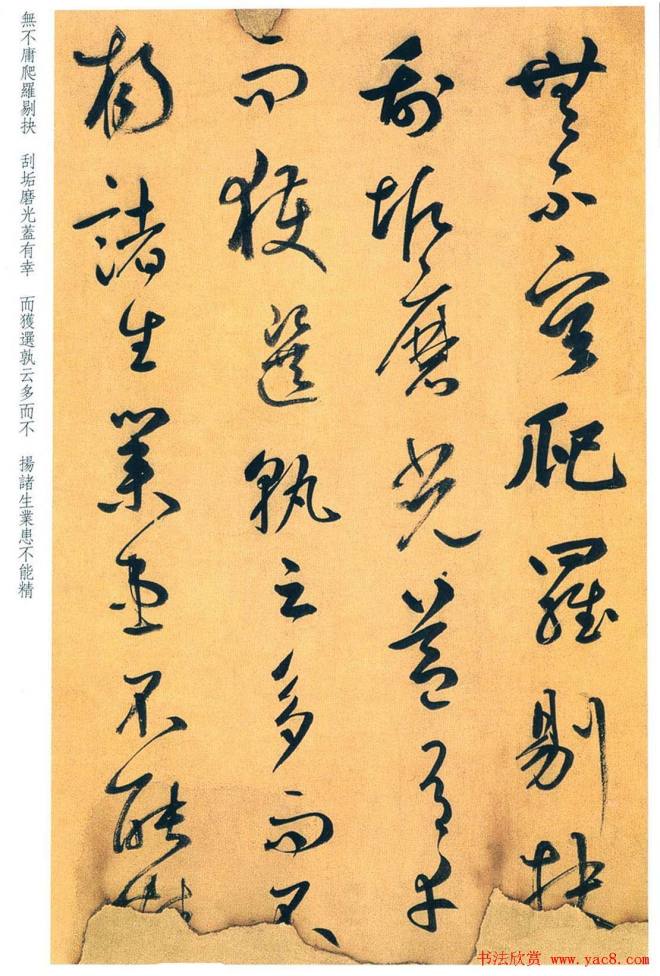 無不庸爬羅剔抉
刮垢磨光蓋有幸
而獲選孰云多而不
揚諸生業患不能精
無不庸爬羅剔抉　刮垢磨光蓋有幸　而獲選孰云多而不　揚諸生業患不能精
书法欣赏 www.yac8.com